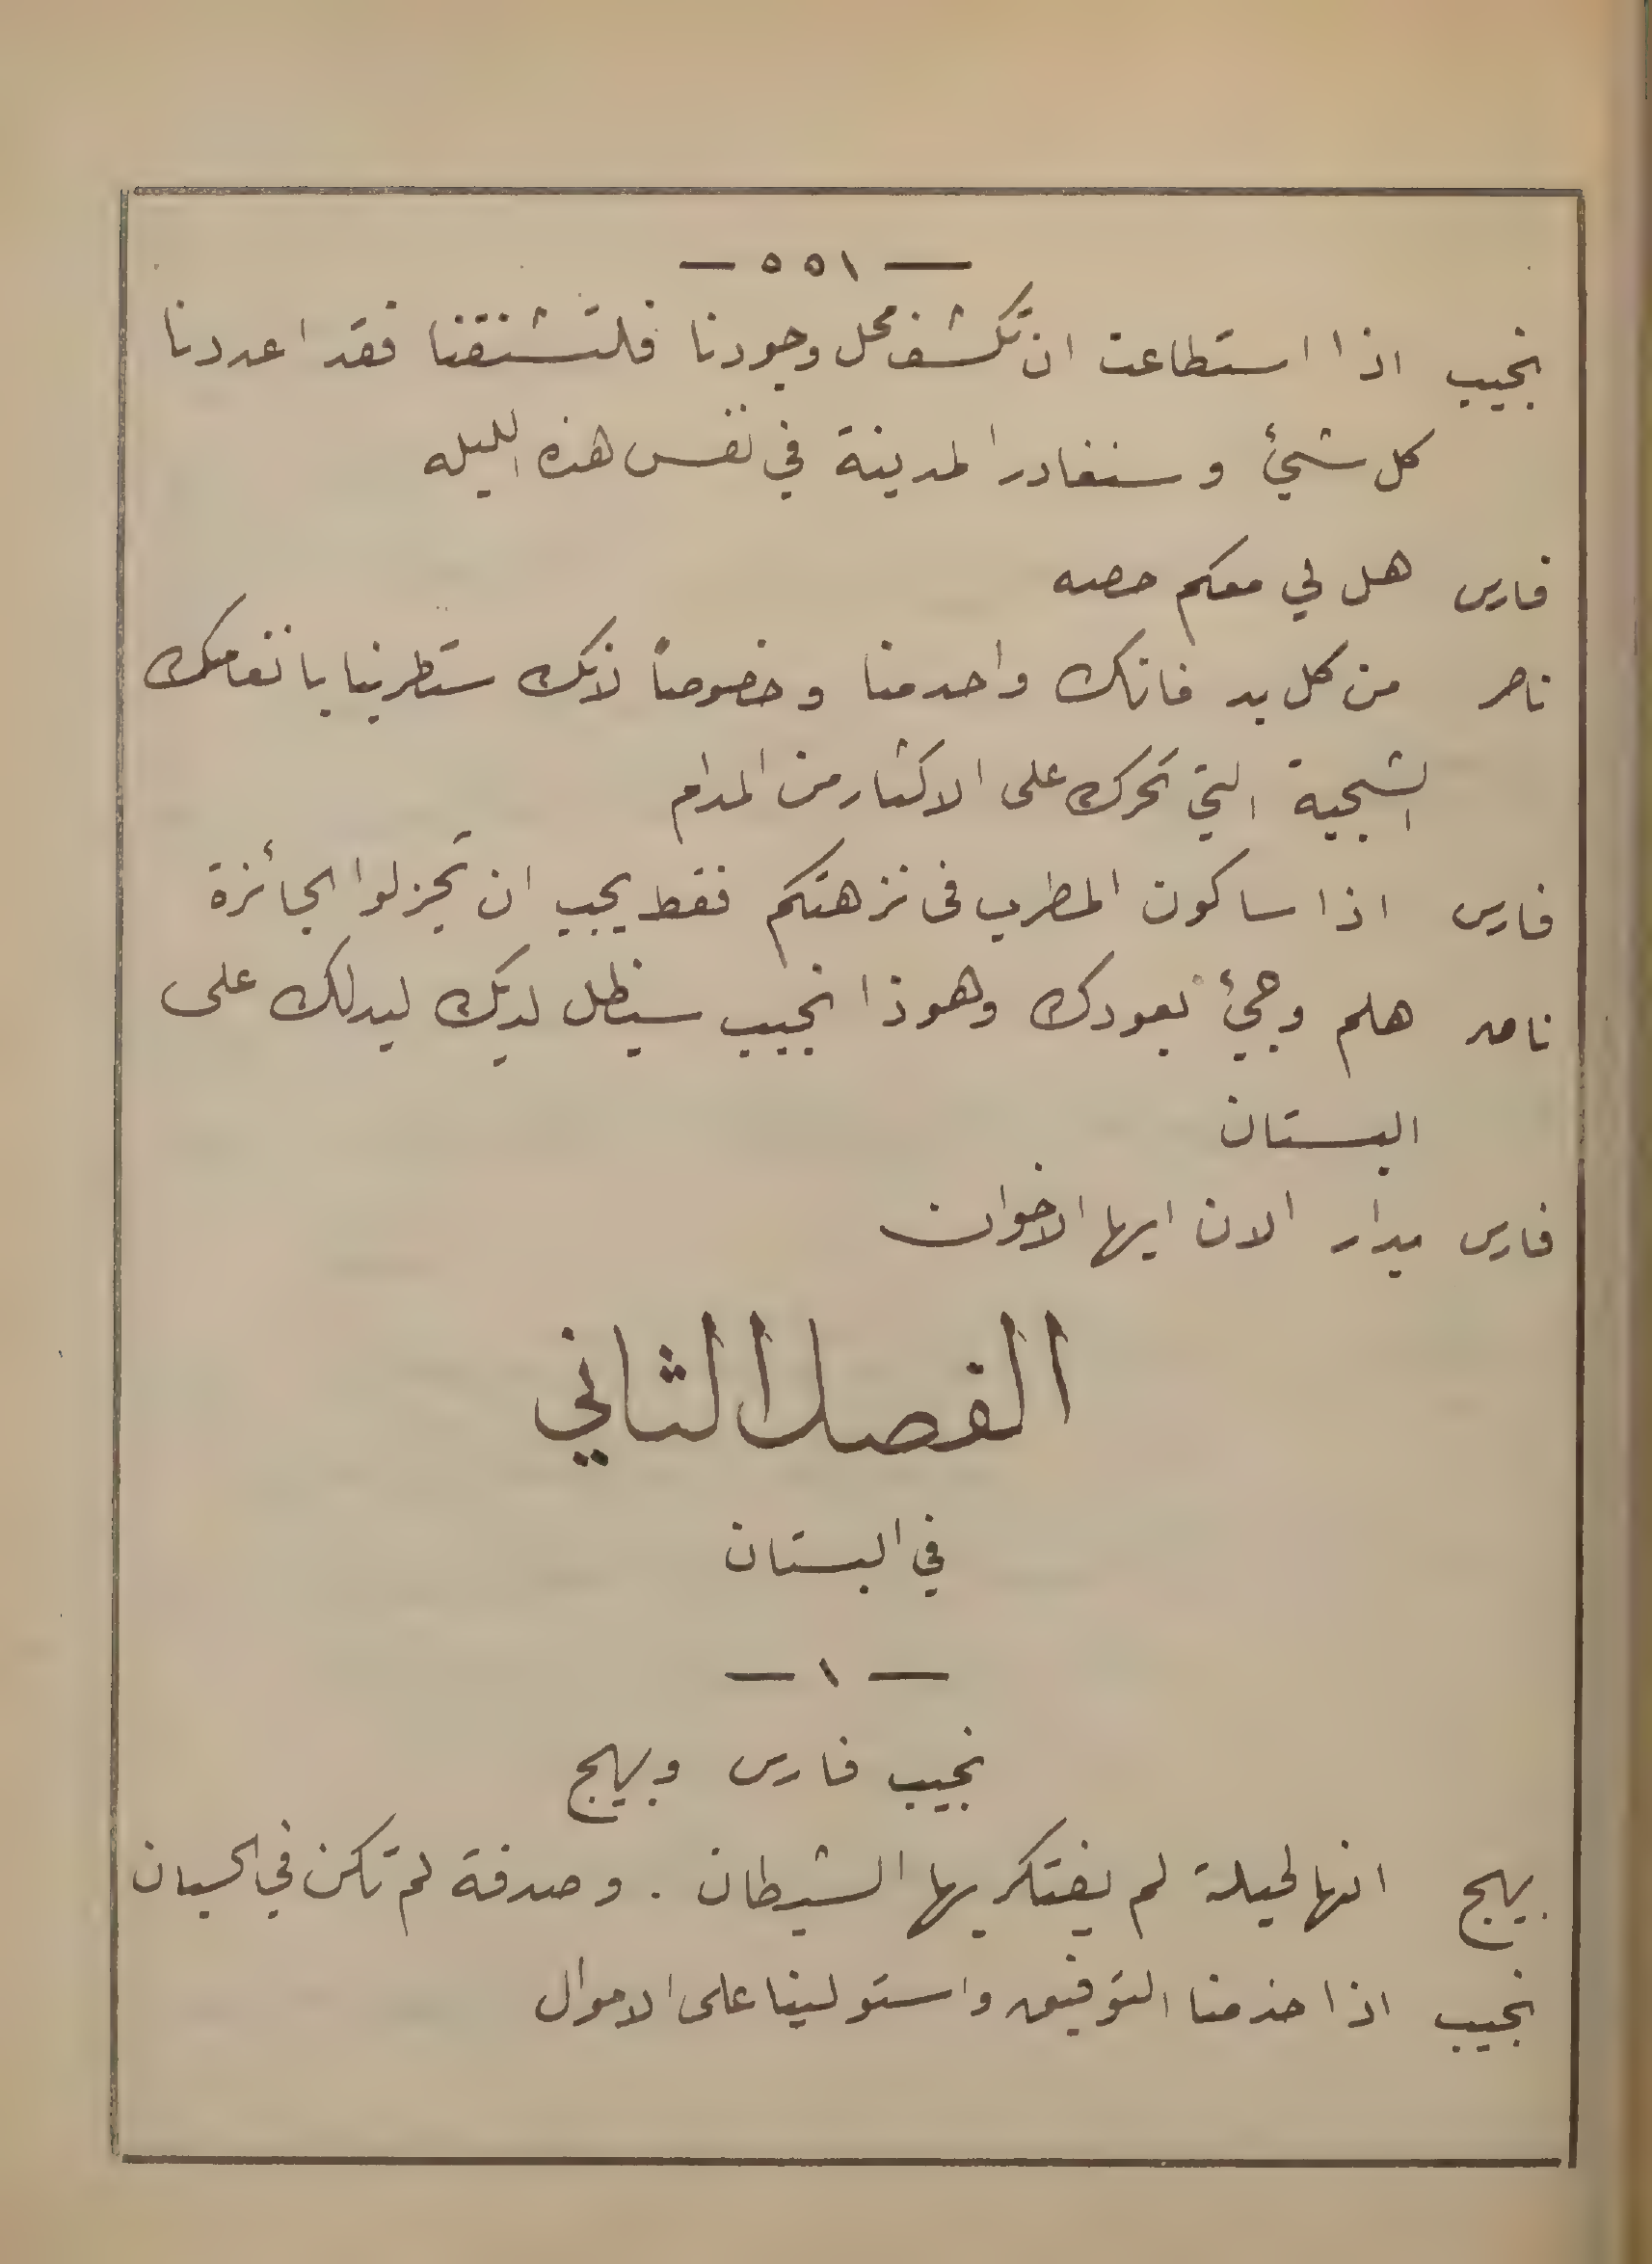 — ٥٥١ —
نجيب اذا استطاعت ان تكشف محل وجودنا فلتشنقنا فقد اعددنا
كل شيئ وسنغادر المدينة في نفس هذه الليله
فارس هل لي معكم حصه
ناصر من كل بد فانك واحد منا وخصوصاً لانك ستطربنا بانغامك
الشجية التي تحرك على الاكثار من المدام
فارس اذا ساكون المطرب فى نزهتكم فقط يجب ان تجزلوا الجائزة
ناصر هلم وجيئ بعودك وهوذا نجيب سيظل لديك ليدلك على
البستان
فارس بدار الان ايها الاخوان
الفصل الثاني
في البستان
— ١ —
نجيب فارس وبهيج
بهيج انها لحيلة لم يفتكر بها الشيطان . وصدفة لم تكن في الحسبان
نجيب اذا خدمنا التوفيق واستولينا على الاموال